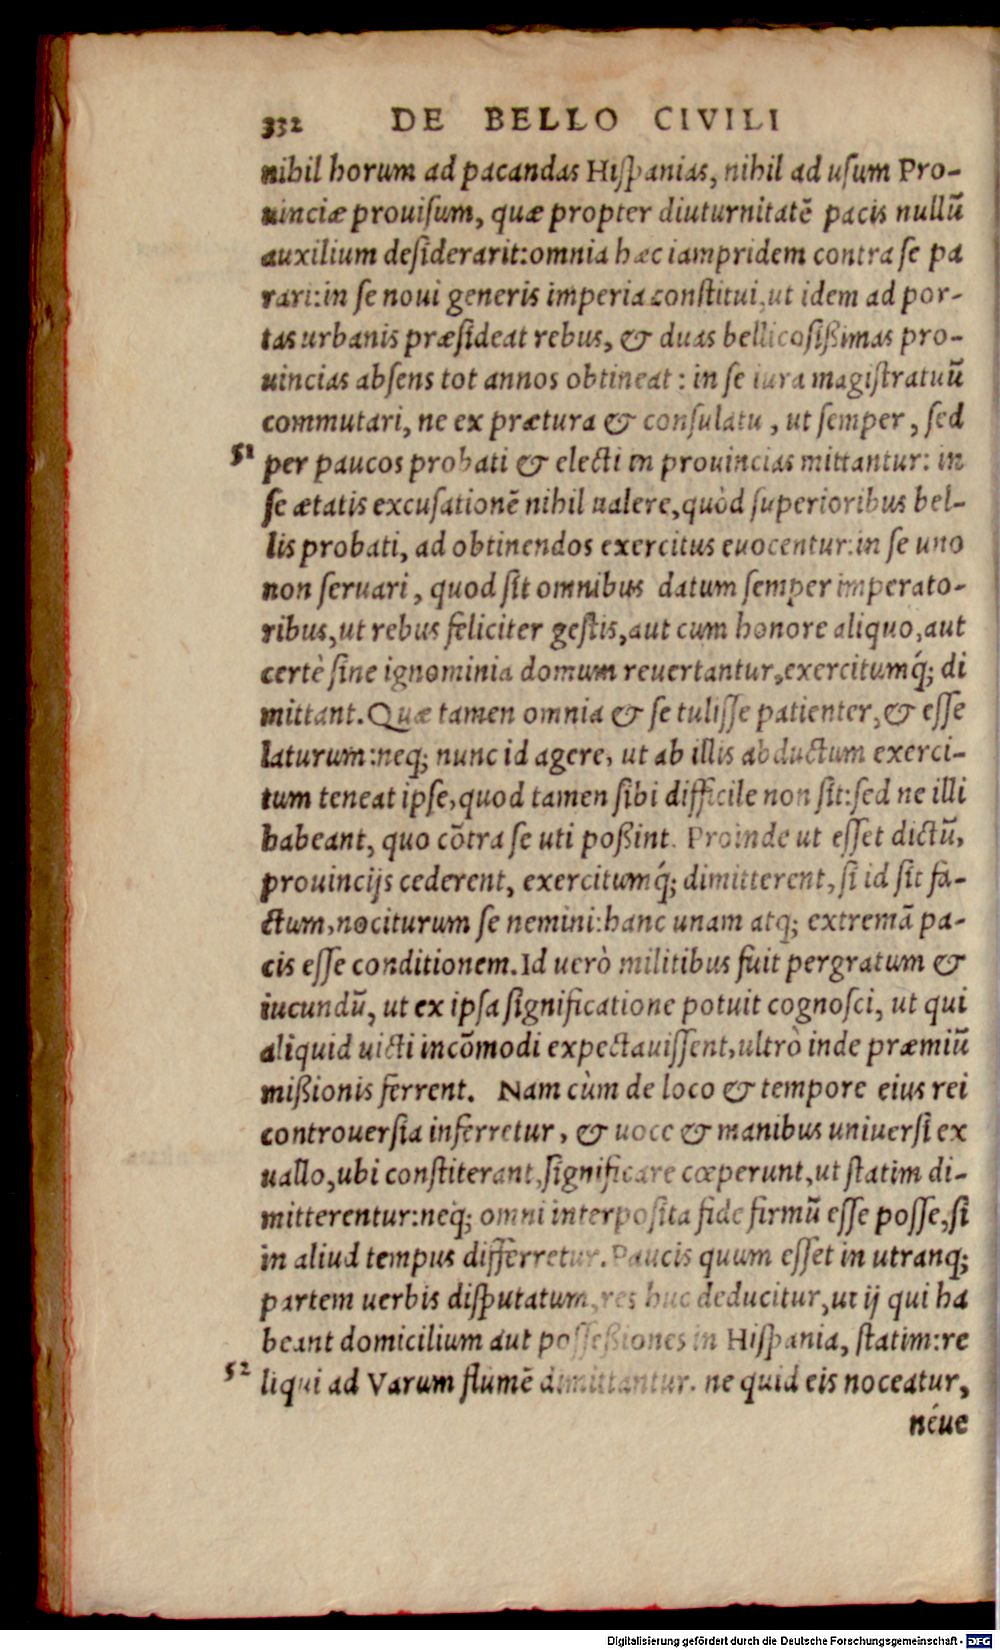 332 DE BELLO CIVILI
nihil horum ad pacandas Hiſpanias, nihil ad uſum Pro-
uinciæ prouiſum, quæ propter diuturnitatē pacis nullū
auxilium deſiderarit:omnia hæc iampridem contra ſe pa
rari:in ſe noui generis imperia conſtitui,ut idem ad por-
tas urbanis præſideat rebus, & duas bellicoſißimas pro-
uincias abſens tot annos obtineat : in ſe iura magiſtratuū
commutari, ne ex prætura & conſulatu , ut ſemper , ſed
51 per paucos probati & electi in prouincias mittantur: in
ſe ætatis excuſationē nihil ualere,quòd ſuperioribus bel-
lis probati, ad obtinendos exercitus euocentur:in ſe uno
non ſeruari , quod ſit omnibus datum ſemper imperato-
ribus,ut rebus feliciter geſtis,aut cum honore aliquo,aut
certè ſine ignominia domum reuertantur,exercitumq́; di
mittant.Quæ tamen omnia & ſe tuliſſe patienter,& eſſe
laturum:neq; nunc id agere, ut ab illis abductum exerci-
tum teneat ipſe,quod tamen ſibi difficile non ſit:ſed ne illi
habeant, quo cōtra ſe uti poßint. Proinde ut eſſet dictū,
prouincijs cederent, exercitumq́; dimitterent, ſi id ſit fa-
ctum,nociturum ſe nemini:hanc unam atq; extremā pa-
cis eſſe conditionem.Id uerò militibus fuit pergratum &
iucundū, ut ex ipſa ſignificatione potuit cognoſci, ut qui
aliquid uicti incōmodi expectauiſſent,ultrò inde præmiū
mißionis ferrent. Nam cùm de loco & tempore eius rei
controuerſia inferretur , & uoce & manibus uniuerſi ex
uallo,ubi conſtiterant,ſignificare cœperunt,ut ſtatim di-
mitterentur:neq́; omni interpoſita fide firmū eſſe poſſe,ſi
in aliud tempus differretur. Paucis quum eſſet in utranq;
partem uerbis diſputatum,res huc deducitur,ut ij qui ha
beant domicilium aut poſſeßiones in Hiſpania, ſtatim:re
52 liqui ad Varum flumē dimittantur. ne quid eis noceatur,
néue
Digitalisierung gefördert durch die Deutsche Forschungsgemeinschaft - DFG